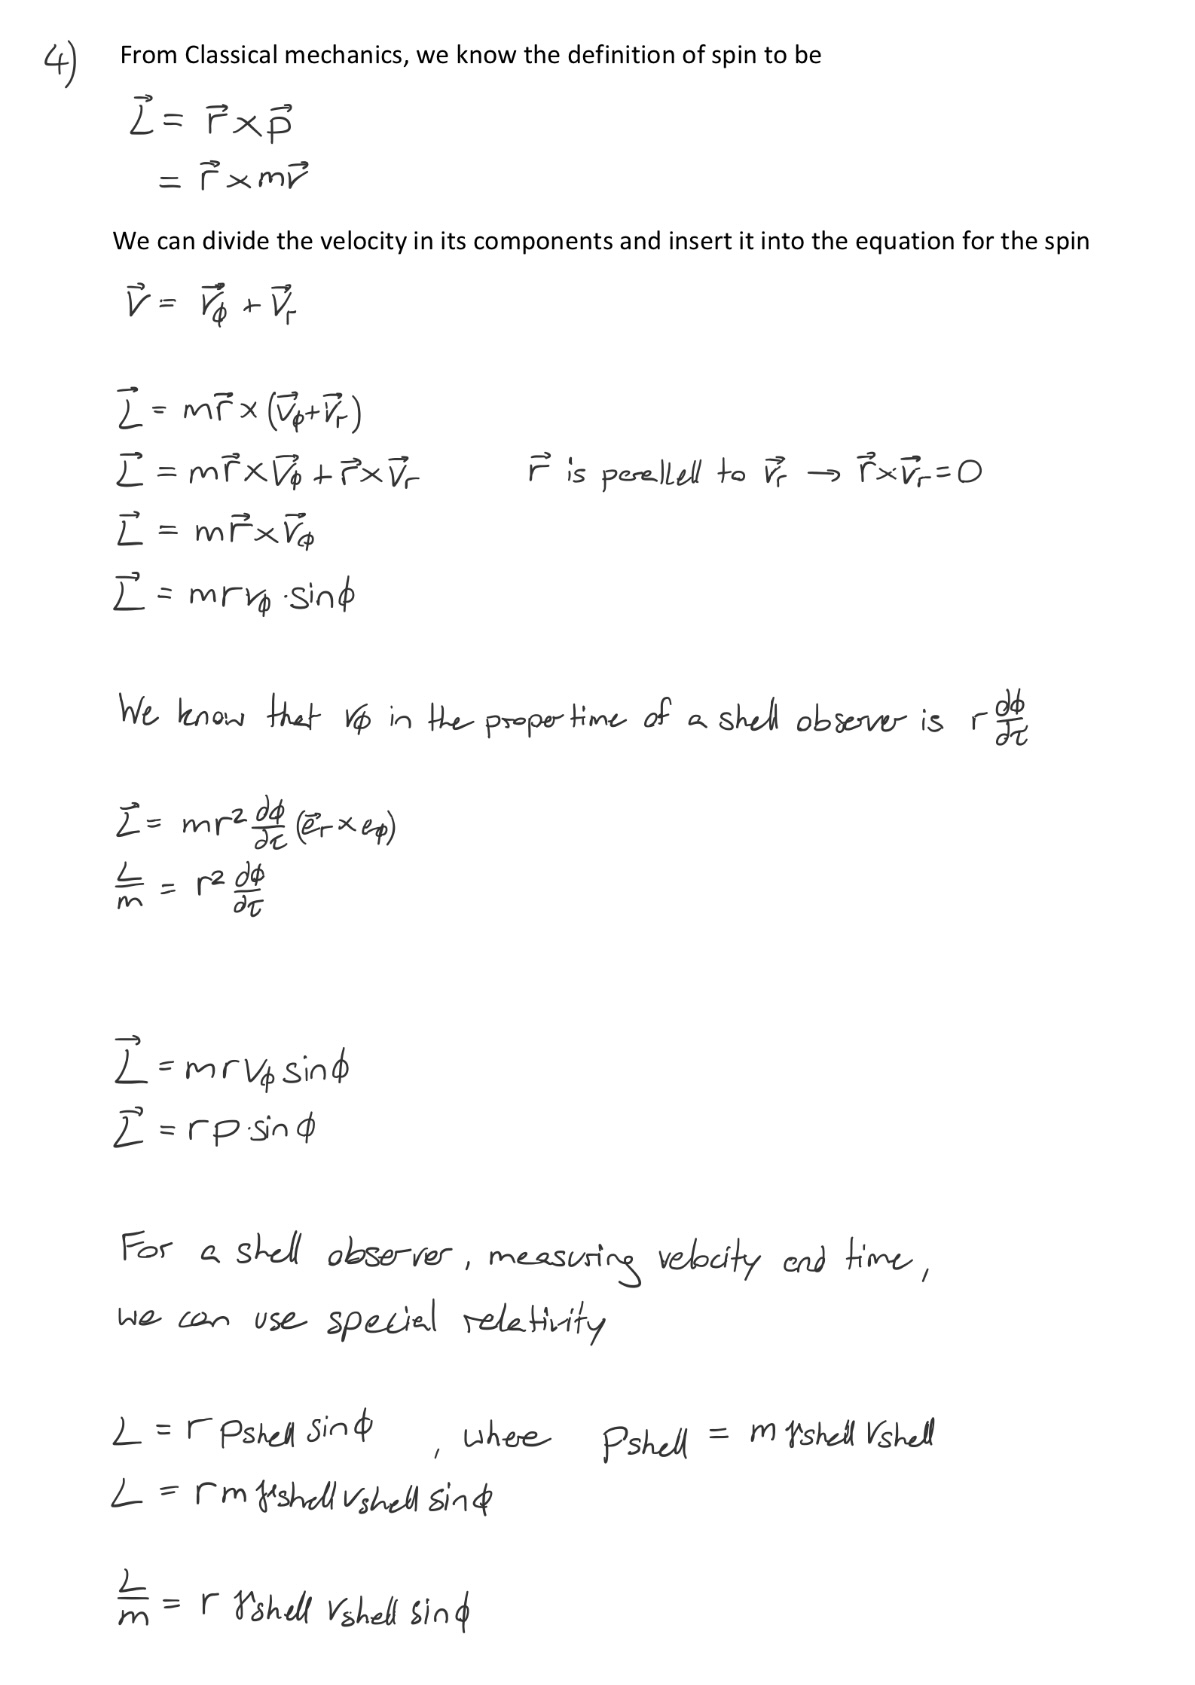 4) From Classical mechanics, we know the definition of spin to be
L⃗ = r⃗ × p⃗
= r⃗ × mv⃗
We can divide the velocity in its components and insert it into the equation for the spin
v⃗ = v⃗ϕ + v⃗r
L⃗ = mr⃗ × (v⃗ϕ + v⃗r)
L⃗ = mr⃗ × v⃗ϕ + r⃗ × v⃗r r⃗ is parallell to v⃗r → r⃗ × v⃗r = 0
L⃗ = mr⃗ × v⃗ϕ
L⃗ = mrvϕ · sinϕ
We know that vϕ in the proper time of a shell observer is r dϕ/dτ
L⃗ = mr² dϕ/dτ (e⃗r × eϕ)
L/m = r² dϕ/dτ
L⃗ = mrvϕ sinϕ
L⃗ = rp · sinϕ
For a shell observer, measuring velocity and time,
we can use special relativity
L = r pshell sinϕ , where pshell = m γshell vshell
L = rm γshell vshell sinϕ
L/m = r γshell vshell sinϕ